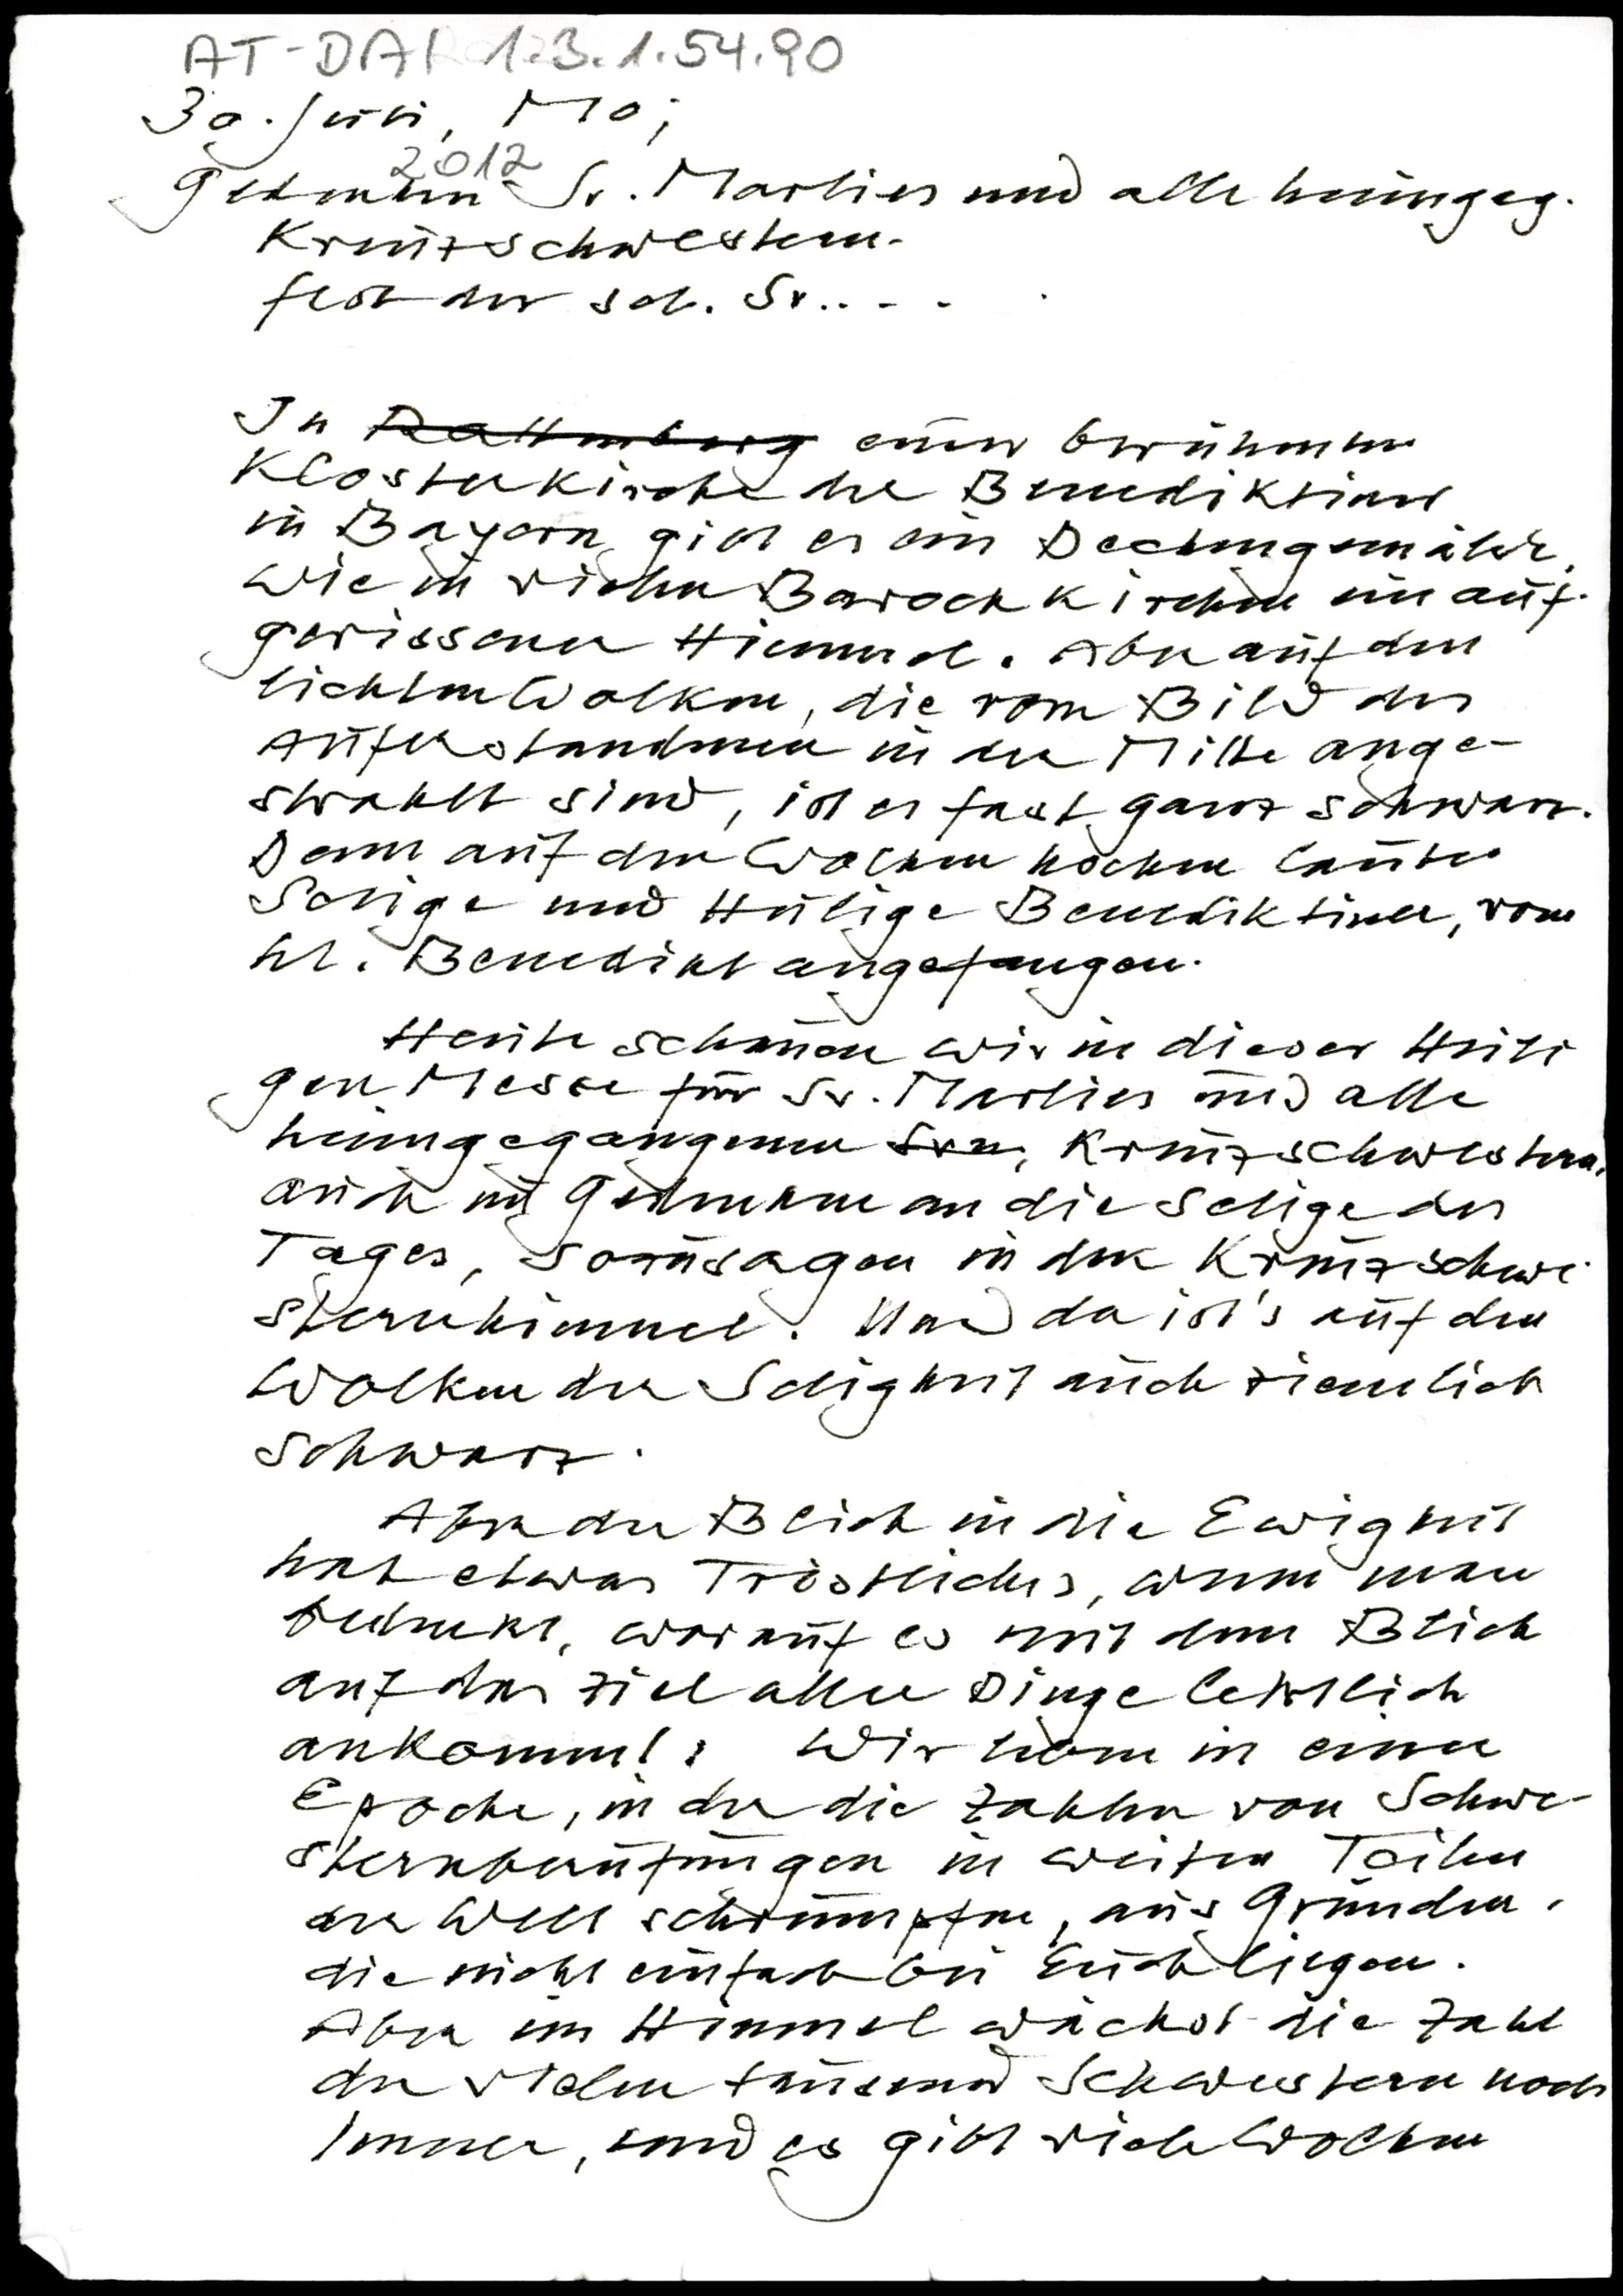 AT-DAI 1.3.1.54.90
30. Juli, Mo;
2012
Gedenken Sr. Marlies und alle heimgeg.
Kreuzschwestern.
Fest der sel. Sr....
In Rattenberg einer berühmten
Klosterkirche der Benediktiner
in Bayern gibt es ein Deckengemälde,
wie in vielen Barockkirchen ein auf-
gerissener Himmel. Aber auf den
lichten Wolken, die vom Bild des
Auferstandenen in der Mitte ange-
strahlt sind, ist es fast ganz schwarz.
Denn auf den Wolken hocken lauter
Selige und Heilige Benediktiner, vom
hl. Benedikt angefangen.
Heute schauen wir in dieser Heili
gen Messe für Sr. Marlies und alle
heimgegangenen Srn, Kreuzschwestern,
auch im Gedenken an die Selige des
Tages, sozusagen in den Kreuzschwe
sternhimmel. Und da ist's auf den
Wolken der Seligkeit auch ziemlich
schwarz.
Aber der Blick in die Ewigkeit
hat etwas Tröstliches, wenn man
bedenkt, worauf es mit dem Blick
auf das Ziel aller Dinge letztlich
ankommt: Wir leben in einer
Epoche, in der die Zahlen von Schwe-
sternberufungen in weiten Teilen
der Welt schrumpfen, aus Gründen,
die nicht einfach bei Euch liegen.
Aber im Himmel wächst die Zahl
der vielen tausend Schwestern noch
immer, und es gibt viele Wolken